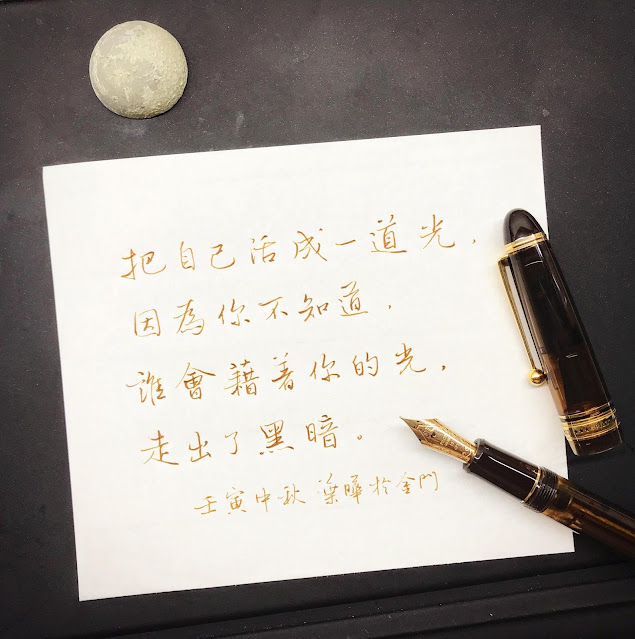 把自己活成一道光，
因為你不知道，
誰會藉著你的光，
走出了黑暗。
壬寅中秋 葉曄於金門